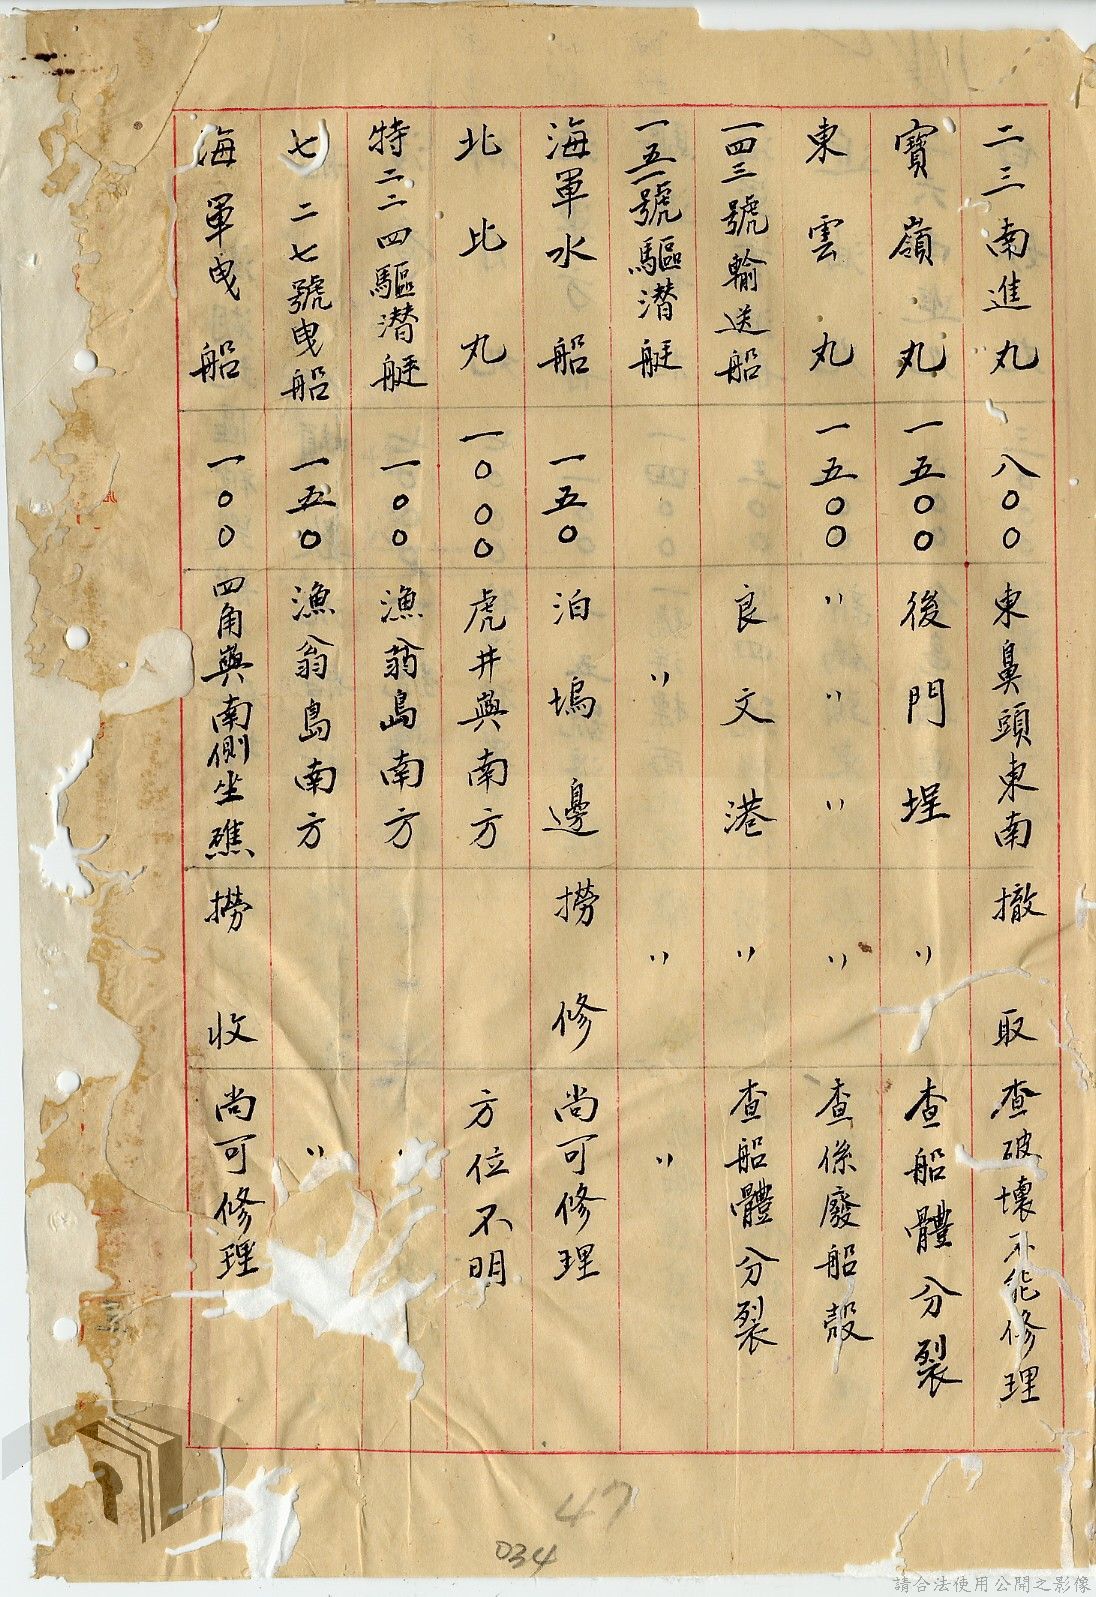 二三南進丸 八〇〇 東鼻頭東南 撤取 查破壞不能修理
寶嶺丸 一五〇〇 後門埕 〃 查船體分裂
東雲丸 一五〇〇 〃〃〃 〃 查係廢船殼
一四三號輸送船 良文港 〃 查船體分裂
一五一號驅潜艇 〃 〃 〃
海軍水船 一五〇 泊塢邊 撈修 尚可修理
北比丸 一〇〇〇 虎井與南方 方位不明
特二二四驅潜艇 一〇〇 漁翁島南方
七二七號曳船 一五〇 漁翁島南方 〃
海軍曳船 一〇〇 四角與南側坐礁 撈收 尚可修理
47
034
請合法使用公開之影像